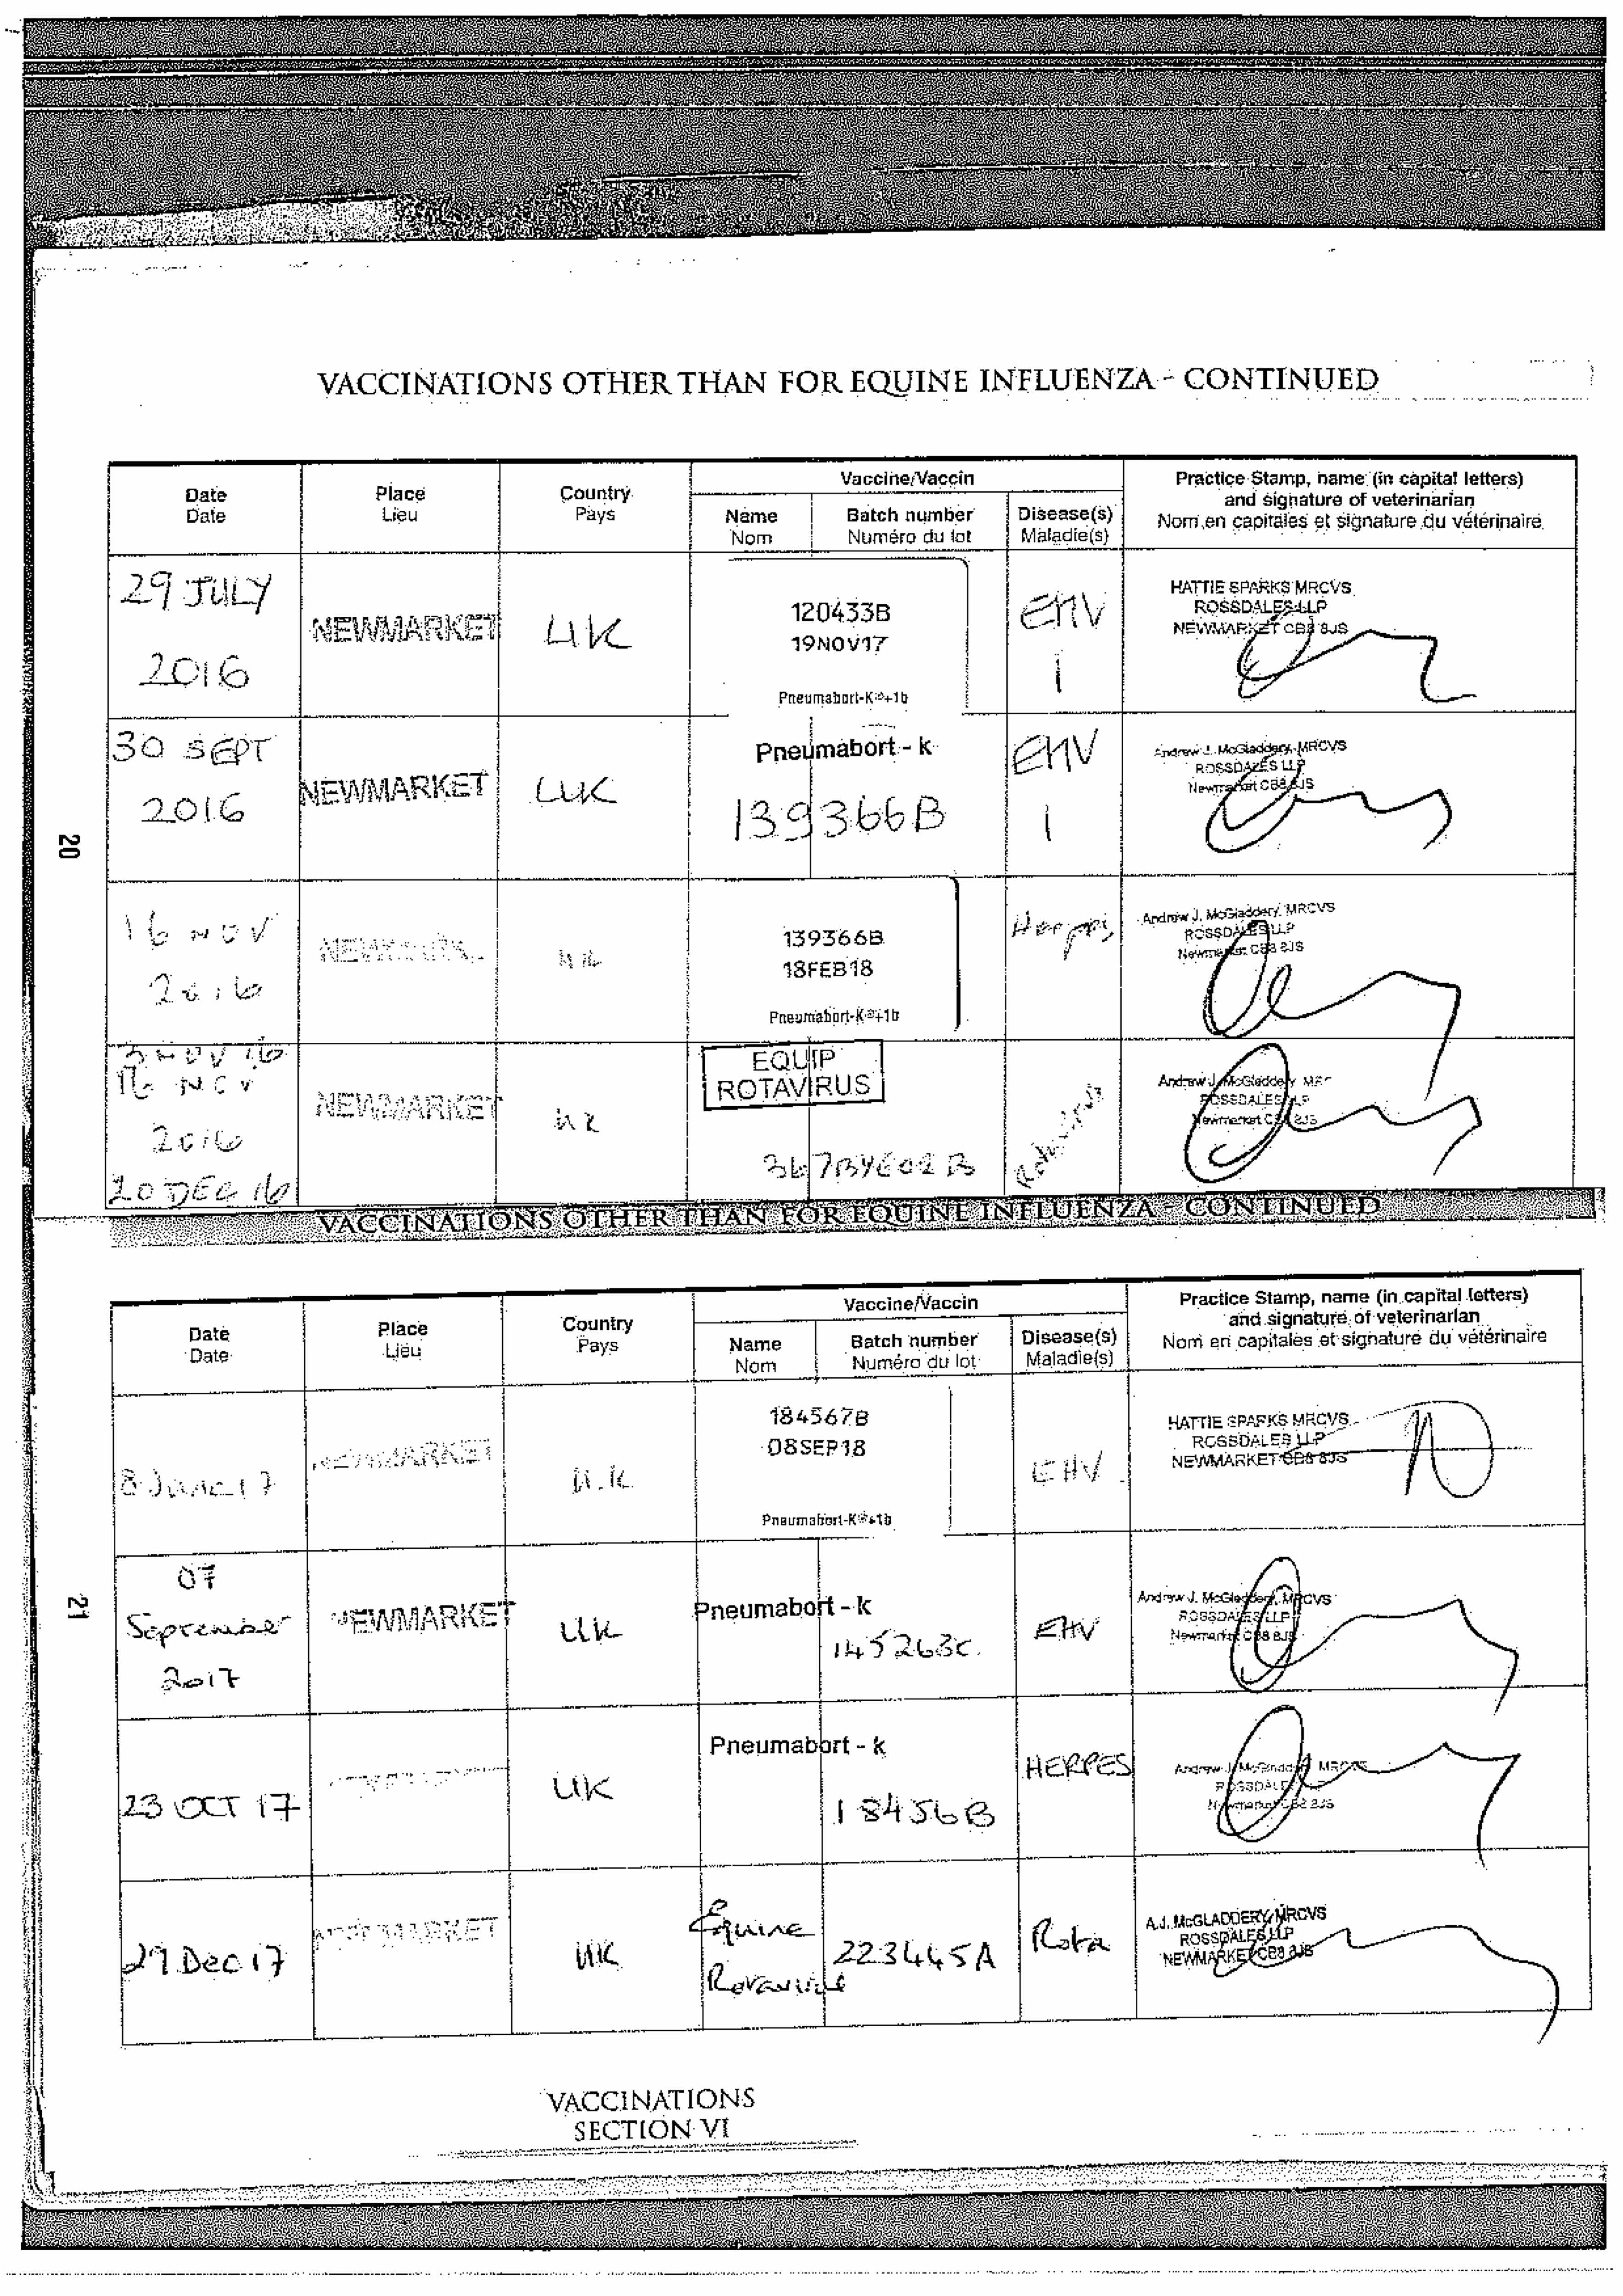 VACCINATIONS OTHER THAN FOR EQUINE INFLUENZA - CONTINUED
Date Date
Place Lieu
Country Pays
Vaccine/Vaccin
Name Nom
Batch number Numéro du lot
Disease(s) Maladie(s)
Practice Stamp, name (in capital letters)
and signature of veterinarian
Nom en capitales et signature du vétérinaire
29 JULY
2016
NEWMARKET
UK
120433B
19NOV17
Pneumabort-K®+1b
EHV
1
HATTIE SPARKS MRCVS
ROSSDALES LLP
NEWMARKET CB8 8JS
30 SEPT
2016
NEWMARKET
UK
Pneumabort - k
139366B
EHV
1
Andrew J. McGladdery, MRCVS
ROSSDALES LLP
Newmarket CB8 8JS
20
16 NOV
2016
UK
139366B
18FEB18
Pneumabort-K®+1b
Herpes
Andrew J. McGladdery, MRCVS
ROSSDALES LLP
Newmarket CB8 8JS
3 NOV 16
16 NOV
2016
20 DEC 16
NEWMARKET
UK
EQUIP
ROTAVIRUS
Rotavirus
Andrew J. McGladdery MRC
ROSSDALES LLP
Newmarket CB8 8JS
VACCINATIONS OTHER THAN FOR EQUINE INFLUENZA - CONTINUED
Date Date
Place Lieu
Country Pays
Vaccine/Vaccin
Name Nom
Batch number Numéro du lot
Disease(s) Maladie(s)
Practice Stamp, name (in capital letters)
and signature of veterinarian
Nom en capitales et signature du vétérinaire
8 June 17
NEWMARKET
U.K.
184567B
08SEP18
Pneumabort-K®+1b
EHV
HATTIE SPARKS MRCVS
ROSSDALES LLP
NEWMARKET CB8 8JS
21
07
September
2017
NEWMARKET
UK
Pneumabort - k
145263C.
EHV
Andrew J. McGladdery, MRCVS
ROSSDALES LLP
Newmarket CB8 8JS
23 OCT 17
UK
Pneumabort - k
18456B
HERPES
Andrew J. McGladdery MRCVS
ROSSDALES LLP
Newmarket CB8 8JS
29 Dec 17
NEWMARKET
UK
Equine
223445A
Rota
A.J. McGLADDERY, MRCVS
ROSSDALES LLP
NEWMARKET CB8 8JS
VACCINATIONS
SECTION VI